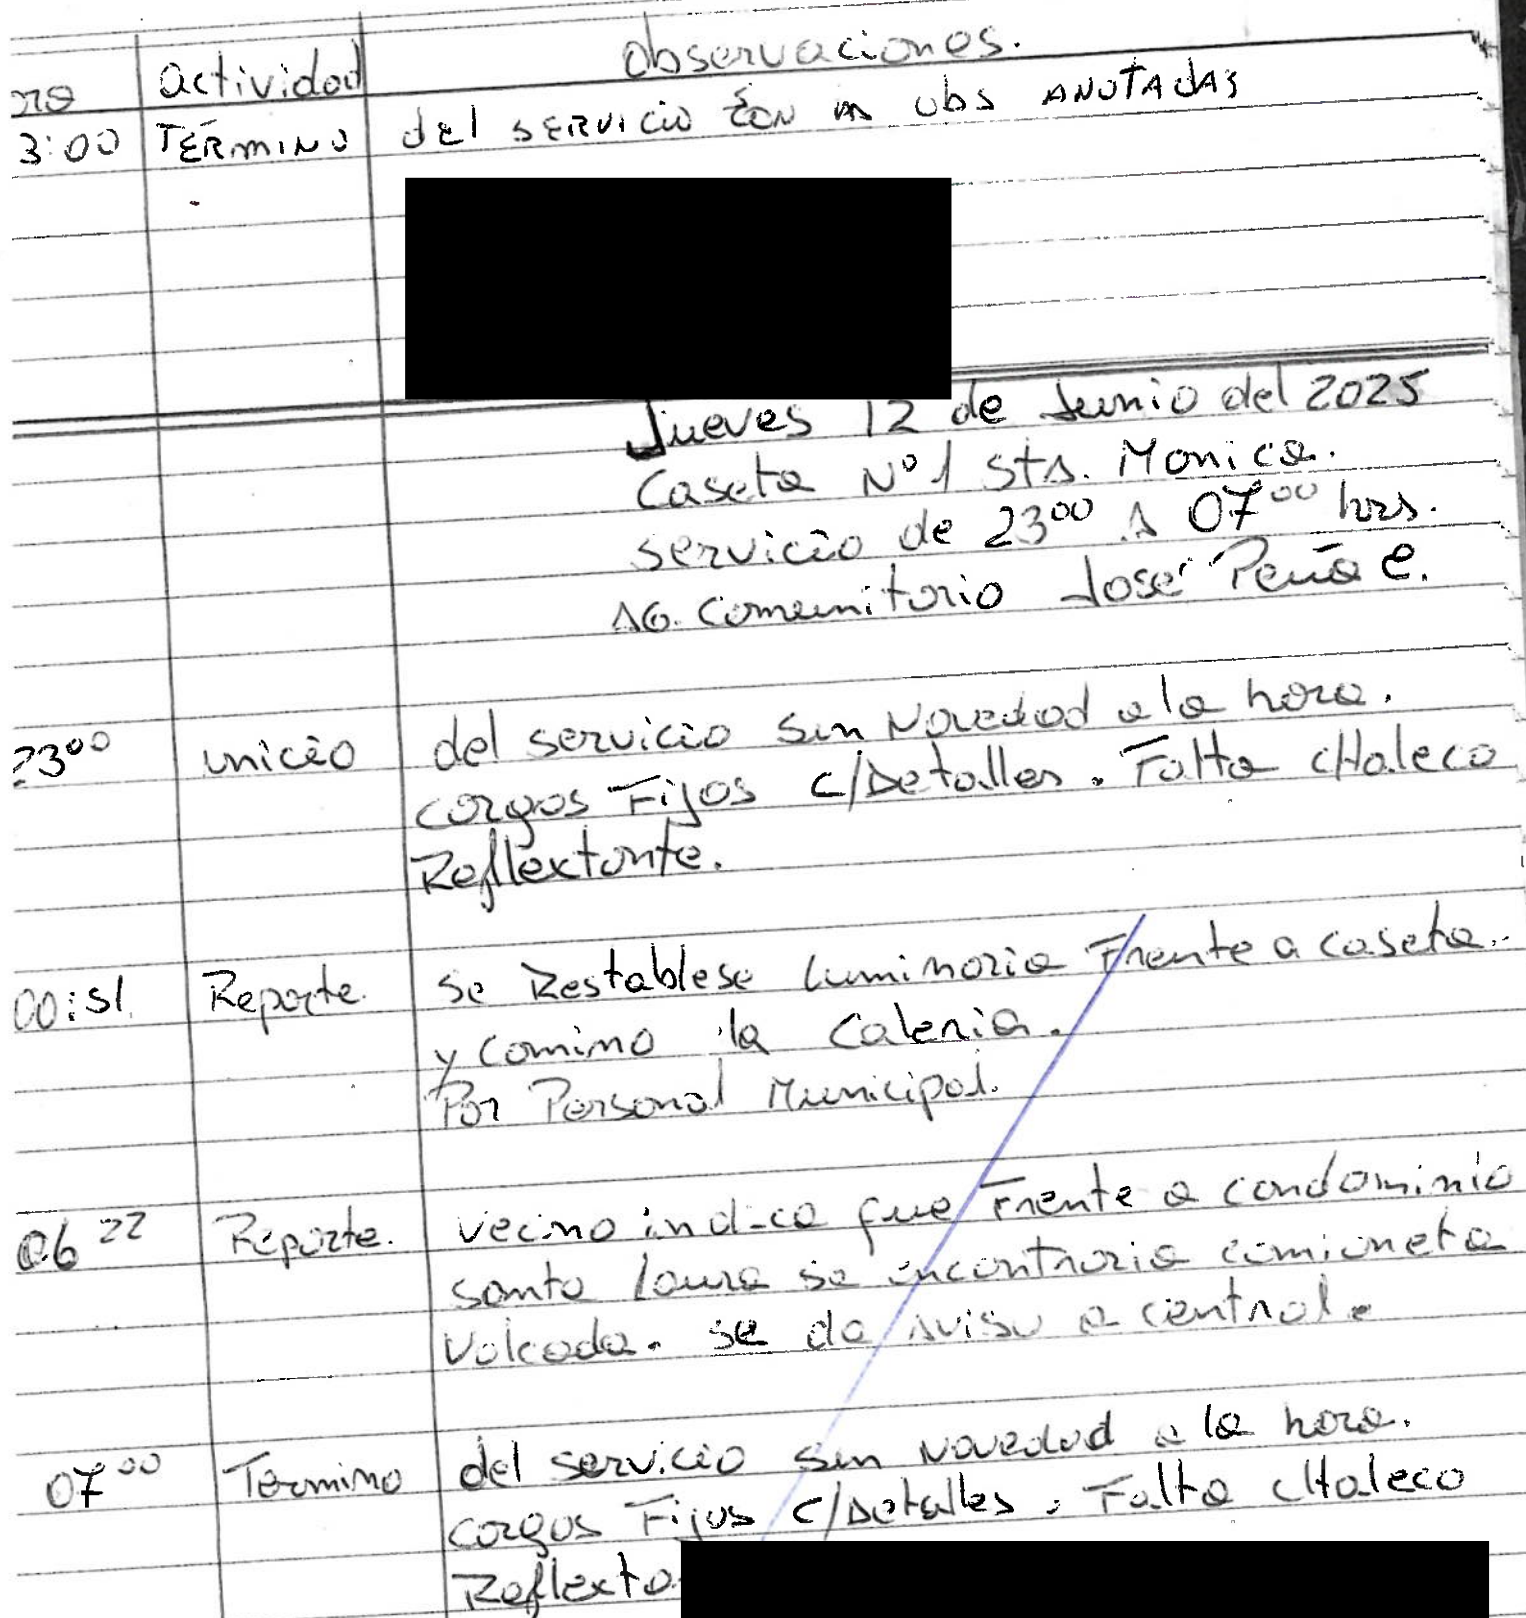 ora actividad observaciones.
3:00 TÉRMINO del SERVICIO CON las obs ANOTADAS
Jueves 12 de Junio del 2025
Caseta Nº 1 Sta. Monica.
servicio de 23⁰⁰ A 07⁰⁰ hrs.
AG. Comunitario José Peña C.
23⁰⁰ inicio del servicio sin Novedad a la hora.
cargos Fijos c/Detalles. Falta cHaleco
Reflextante.
00:51 Reporte. Se Restablese luminaria Frente a caseta.
y Camino la Caleria.
Por Personal Municipal.
06 22 Reporte. Vecino indica que Frente a condominio
santa laura se encontraria camioneta
Volcada. se da Aviso a central.
07⁰⁰ Termino del servicio sin Novedad a la hora.
cargos Fijos c/Detalles. Falta cHaleco
Reflexta